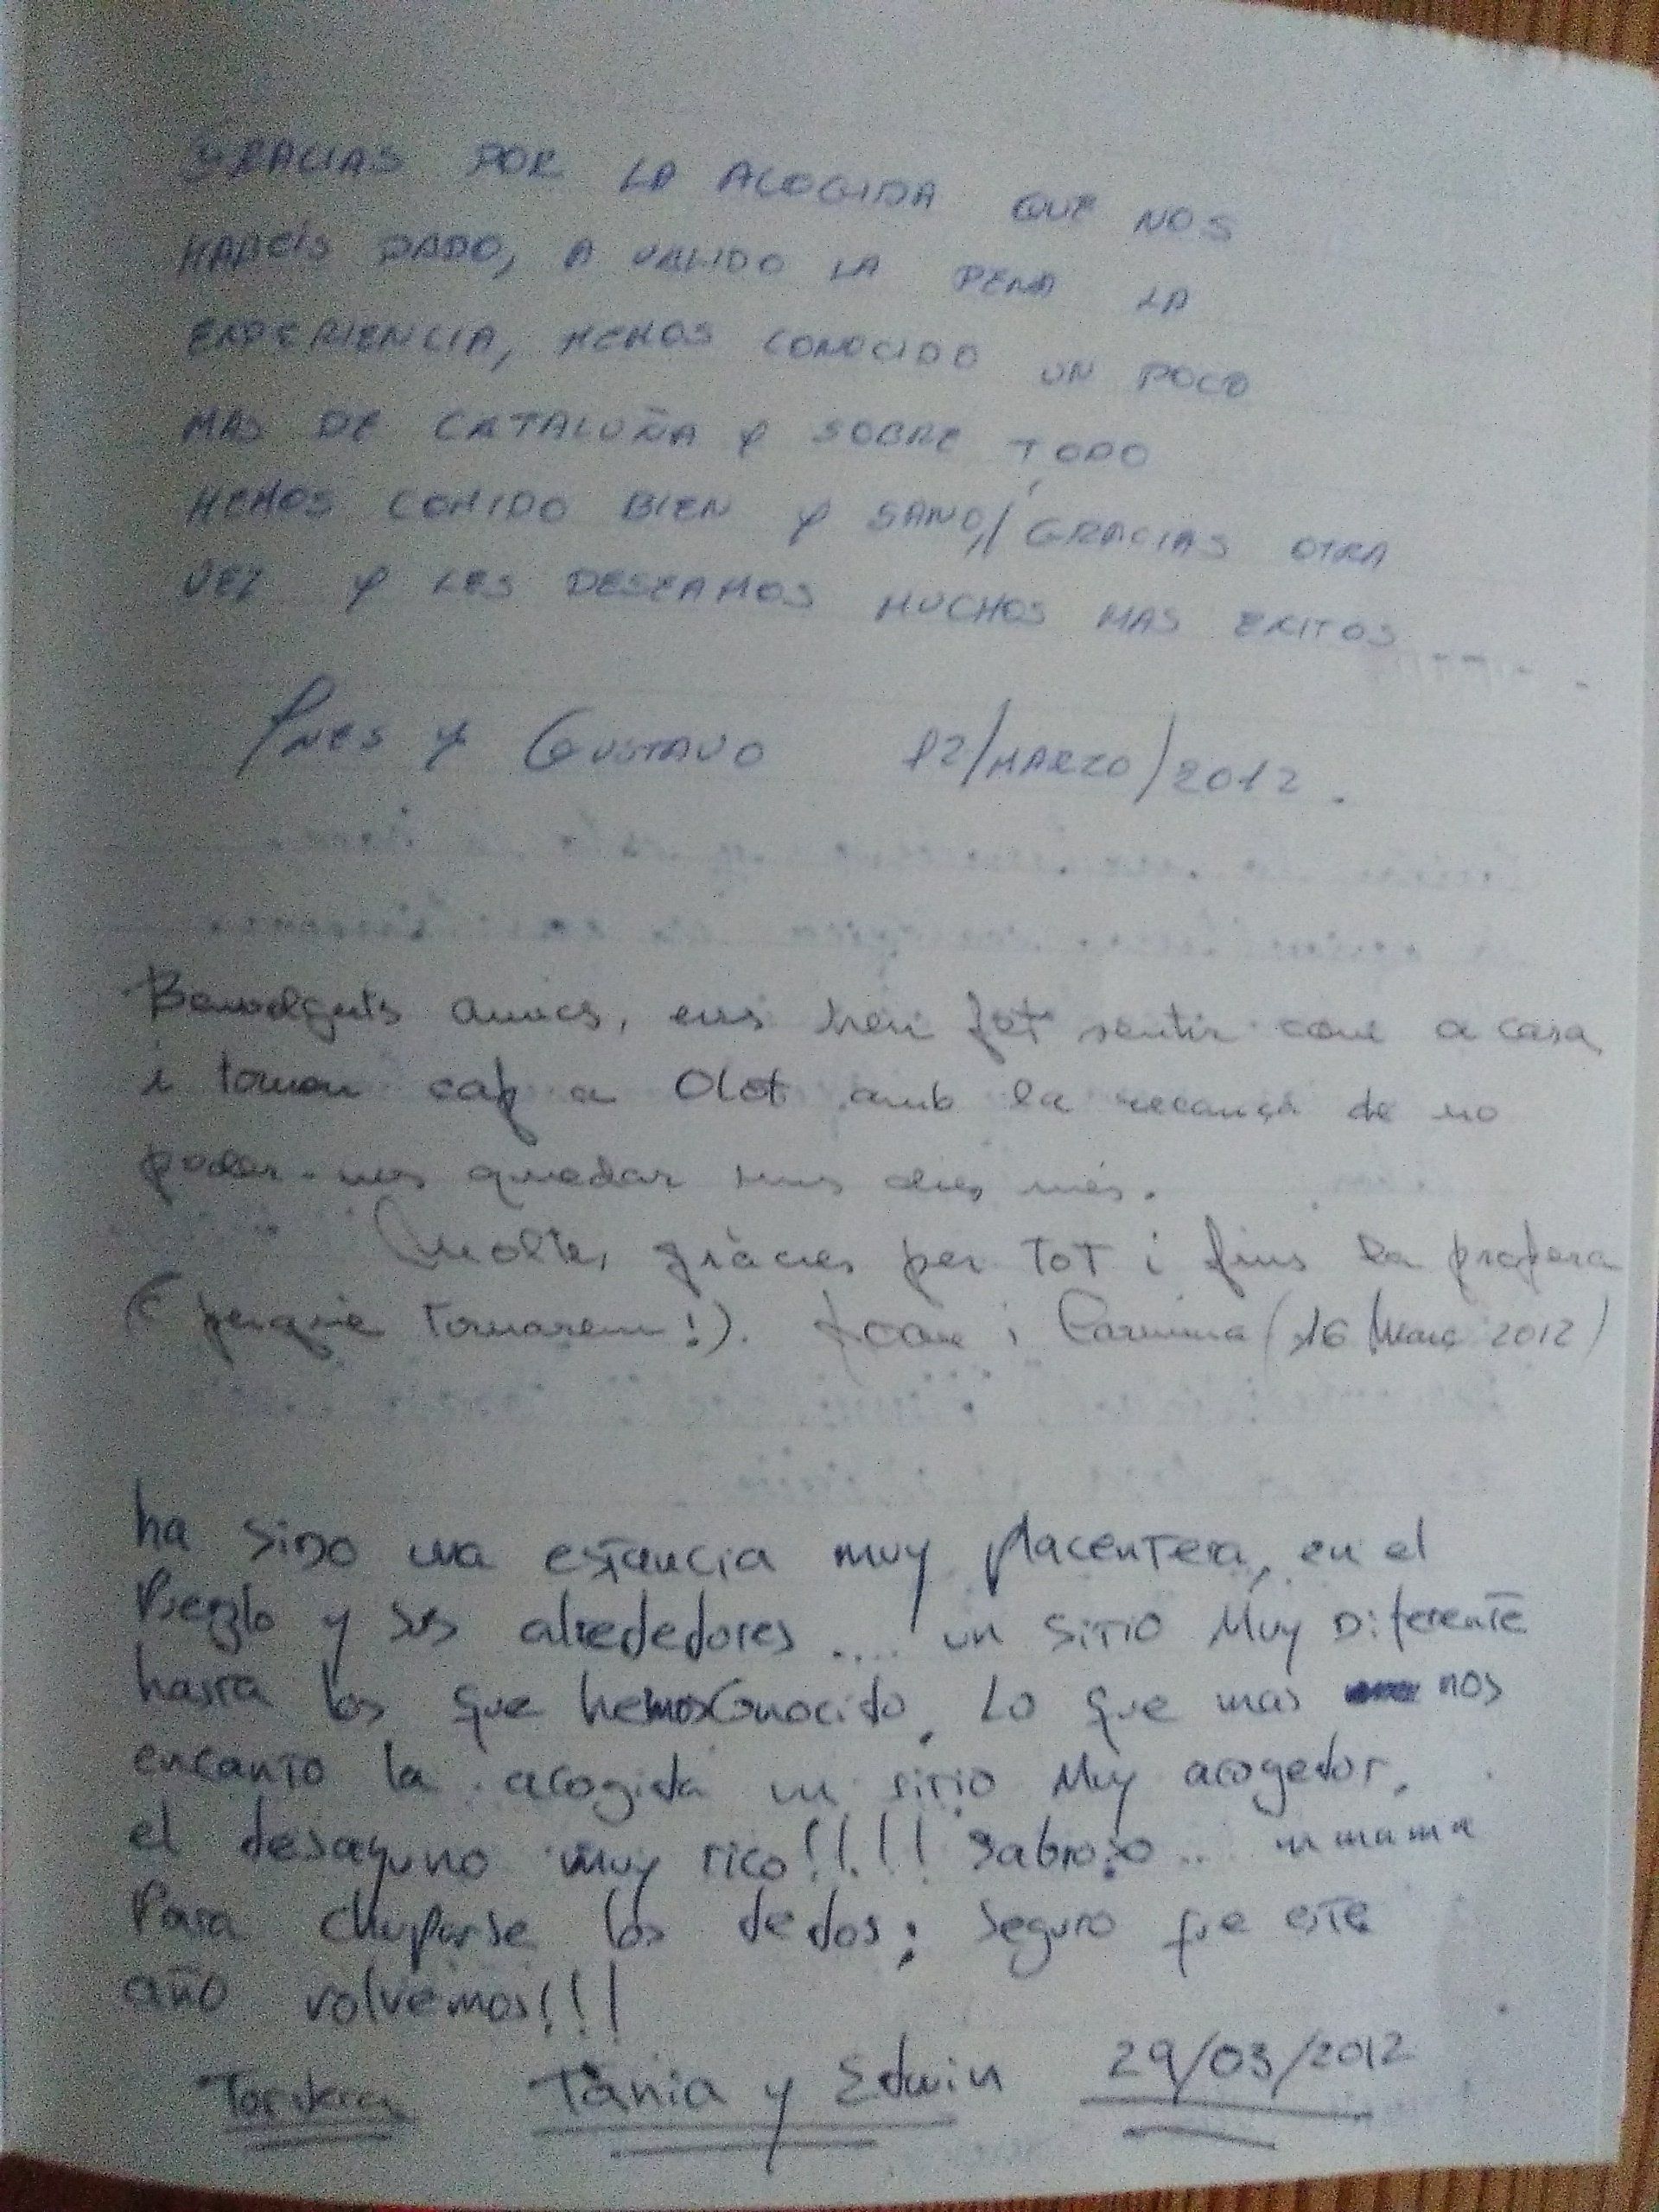 GRACIAS POR LA ACOGIDA QUE NOS
HABEÍS DADO, A VALIDO LA PENA LA
EXPERIENCIA, HEMOS CONOCIDO UN POCO
MAS DE CATALUÑA Y SOBRE TODO
HEMOS COMIDO BIEN Y SANO, GRACIAS OTRA
VEZ Y LES DESEAMOS MUCHOS MAS EXITOS......
INES Y GUSTAVO 12/MARZO/2012.
Benvolguts amics, ens heu fet sentir com a casa
i tornem cap a Olot amb la recança de no
poder-nos quedar uns dies més.
Moltes gràcies per tot i fins la propera
(perquè tornarem!). Joan i Carmina (16 Març 2012)
ha sido una estancia muy placentera, en el
y sus alrededores .... un sitio Muy Diferente
hasta los que hemos Conocido. Lo que mas nos
encanto la acogida un sitio Muy acogedor,
el desayuno muy rico!!!! sabroso... mmmm
Para chuparse los dedos; seguro que este
año volvemos!!!
Tordera Tània y Edwin 29/03/2012